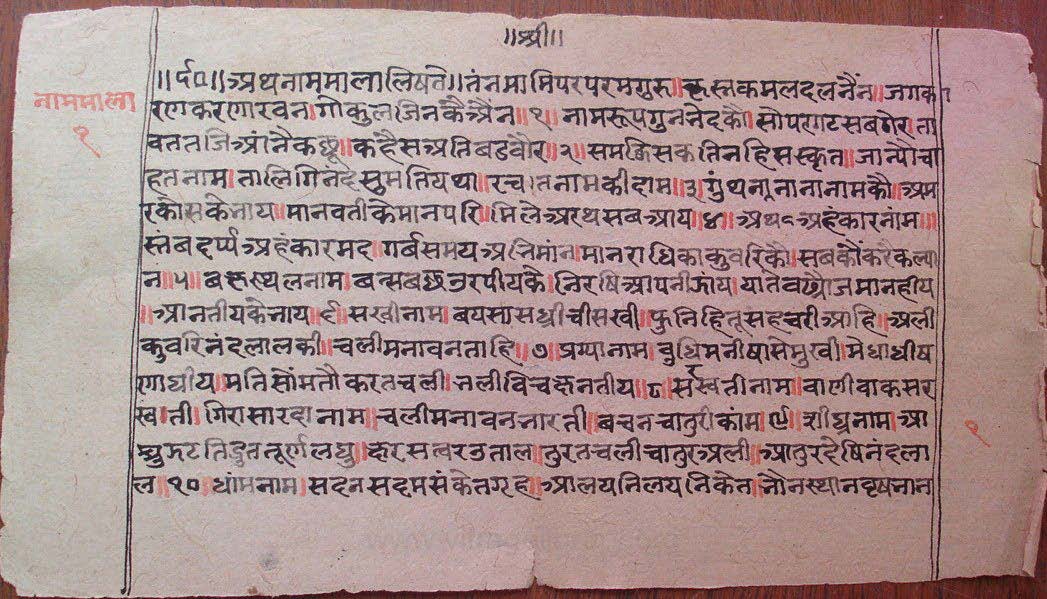 ॥श्री॥
॥र्द०॥अथनाममालालिषते॥तंनमामिपरपरमगुरु॥कृस्नकमलदलनैंन॥जगका
नाममाला
रणकरणारवन॥गोकुलजिनकैअैन॥१॥नामरूपगुननेदकौ॥सोपरगटसबगेर॥ता
१
वतनजिआंनैकछू॥कहैसअतिबडवौर॥२॥समकिसकतिनहिसंस्कृत॥जान्यौचा
हतनाम॥तालिगिनंदसुमतियथा॥रचतनामकीदाम॥३॥गुंथनानानानामकौ॥अम
रकोसकैनाय॥मानवतीकैमानपरि॥मिलैअरथसबआय॥४॥अथअहंकारनांम॥
स्तंबदर्प्पअहंकारमद॥गर्बसमयअनिमांन॥मानराधिकाकुवरिकौ॥सबकौंकरैकल्या
न॥५॥
आननतीयकैनाय॥६॥सखीनाम॥बयस्यासध्रीचीसखी॥फुनिहितूसहचरीआहि॥अली
कुवरिनंदलालकी॥चलीमनावनताहि॥७॥प्रग्यानाम॥बुधिमनीषासेमुखी॥मेधाधीष
णाधीय॥मतिसोंमतौकरतचली॥नलीविचछनतीय॥८॥सर्स्वतीनाम॥बाणीवाकसर
स्व।ती॥गिरासारदानाम॥चलीमनावननारती॥बचनचातुरीकांम॥९॥शीघ्रनाम॥आ
१
घुझटतिद्रुततूर्णलघु॥छरसत्वरउताल॥तुरतचलीचातुरअली॥आतुरदेषिनंदला
ल॥१०॥धांमनाम॥सदनसदमसंकेतगृह॥आलयनिलयनिकेत॥नौनस्थानवृषनान